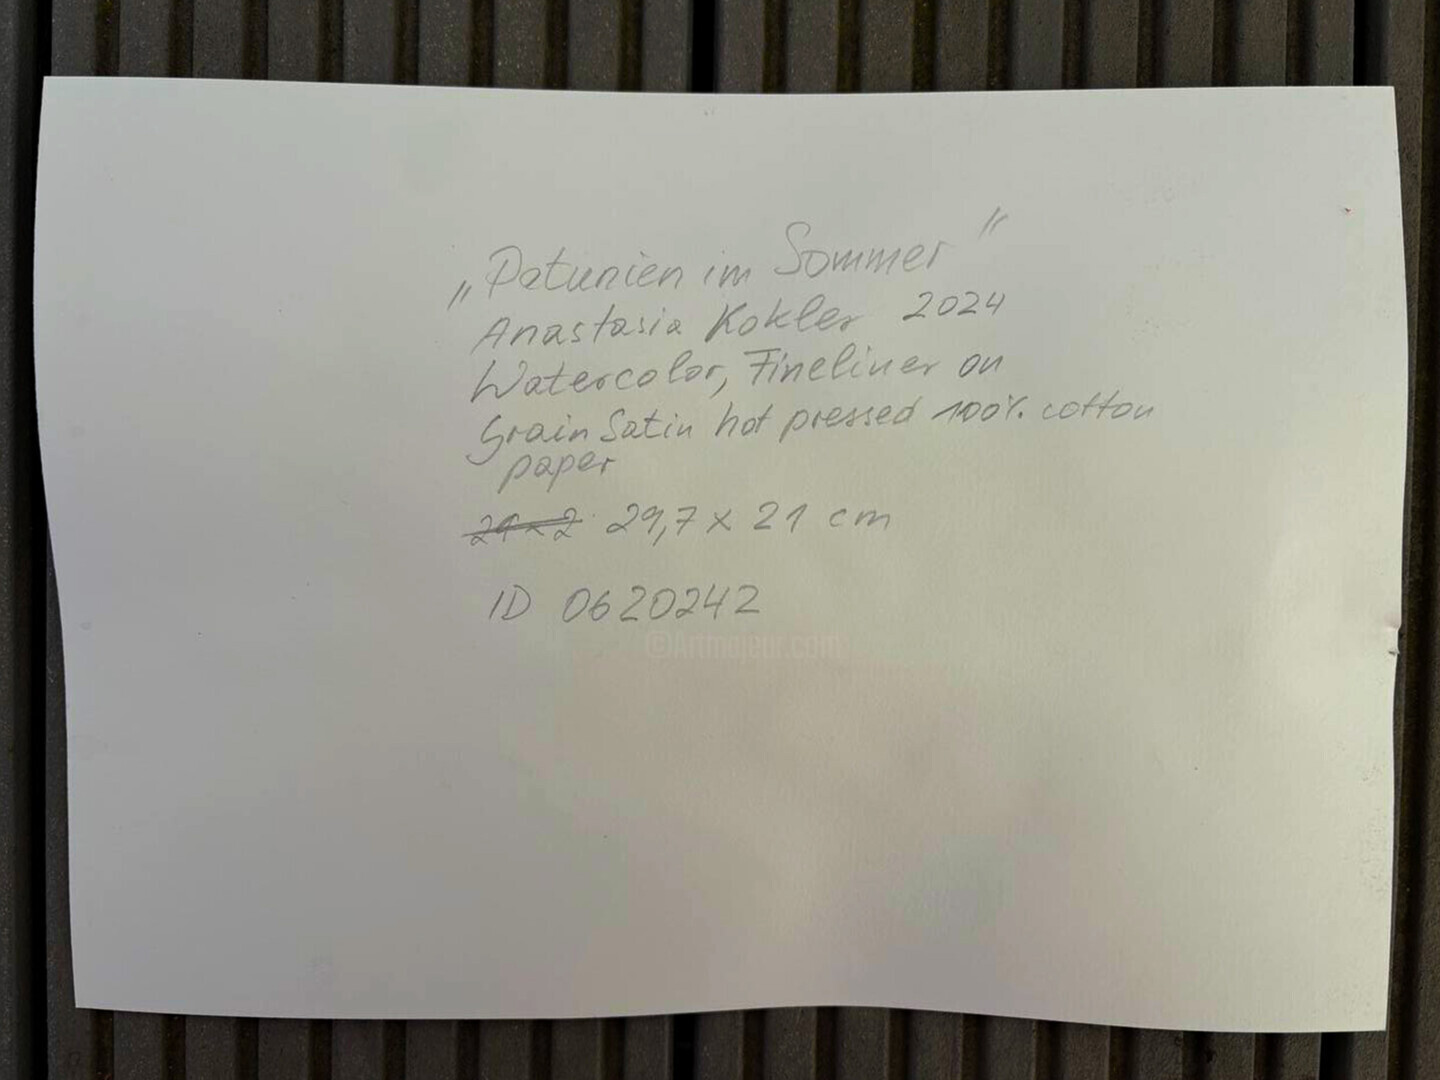 „Petunien im Sommer"
Anastasia Kokler 2024
Watercolor, Fineliner on
Grain Satin hot pressed 100% cotton
paper
29,7 x 21 cm
ID 0620242
©Artmajeur.com